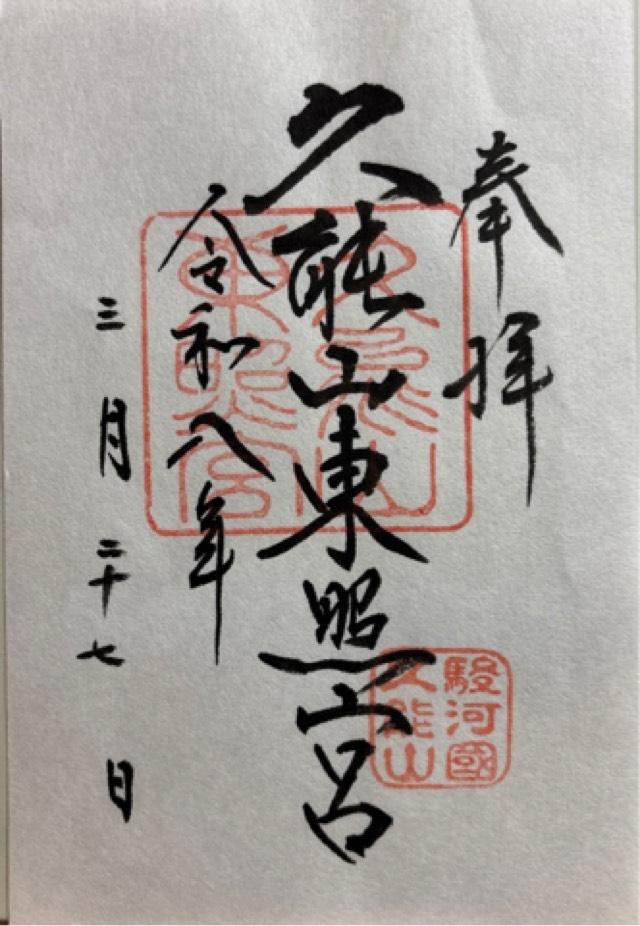 奉拝
久能山東照宮
令和八年
三月二十七日
久能山
東照宮
駿河國
久能山